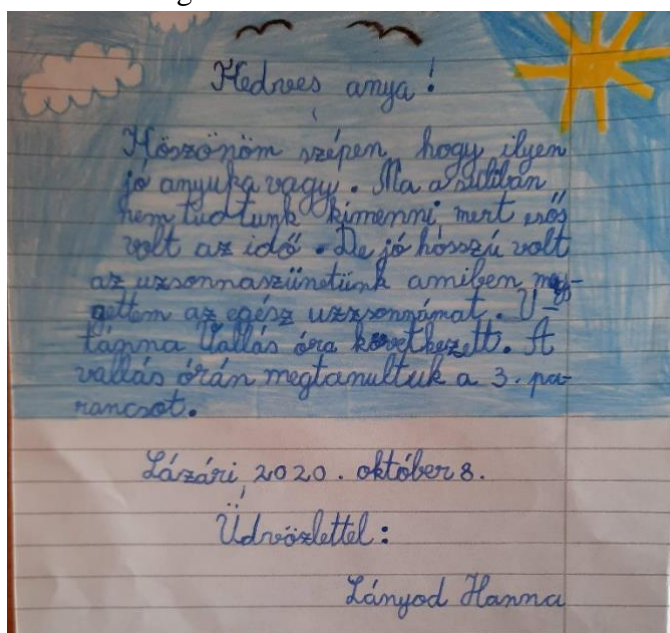 Kedves anya!
Köszönöm szépen, hogy ilyen
jó anyuka vagy. Ma a suliban
nem tudtunk kimenni mert esős
volt az idő. De jó hosszú volt
az uzsonnaszünetünk amiben meg-
gettem az egész uzzsonnámat. U-
tánna Vallás óra következett. A
vallás órán megtanultuk a 3. pa-
rancsot.
Lázári, 2020. október 8.
Üdvözlettel:
Lányod Hanna